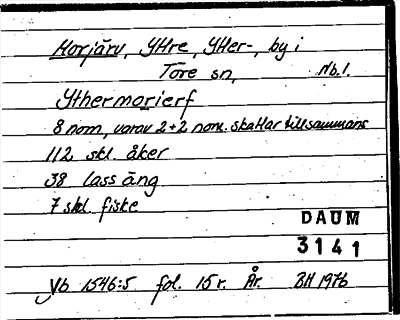 Morjärv, Yttre, Ytter-, by i
Töre sn, Nb.l.
Ythermorierf
8 nom, varav 2+2 nom. skattar tillsammans
112 skl. åker
38 lass äng
7 skl. fiske
DAUM
3141
Vb 1546:5 fol. 15 r. År. BH 1976